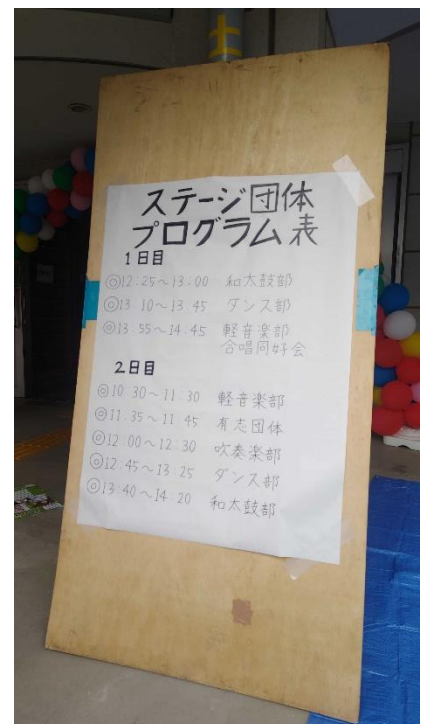 土
ステージ団体
プログラム表
1日目
◎12:25～13:00 和太鼓部
◎13 10～13 45 ダンス部
◎13.55～14.45 軽音楽部
合唱同好会
2日目
◎10:30～11:30 軽音楽部
◎11.35～11 45 有志団体
◎12:00～12:30 吹奏楽部
◎12:45～13 25 ダンス部
◎13:40～14:20 和太鼓部